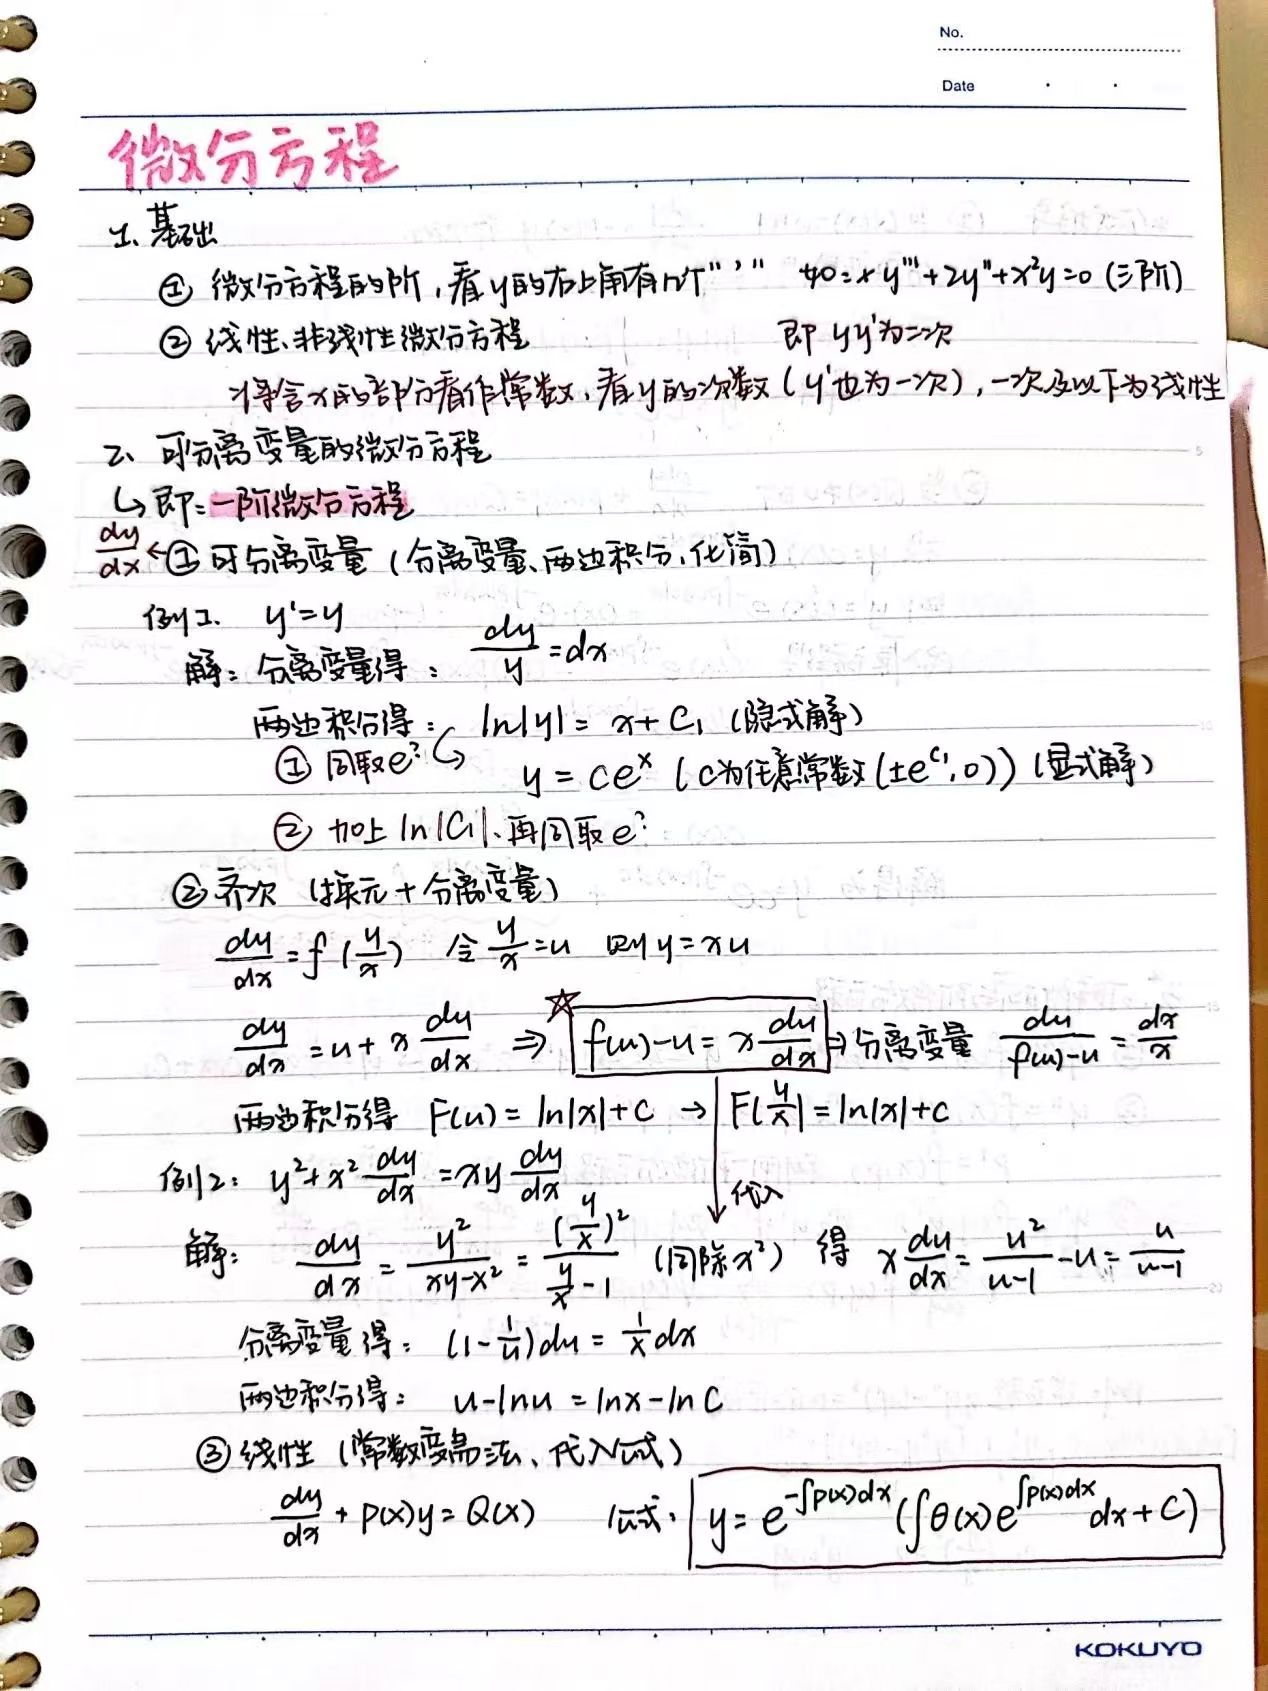 No.
Date
微分方程
1、基础
① 微分方程的阶，看y的右上角有n个" ′ " 如：xy'''+2y''+x²y=0 (三阶)
② 线性、非线性微分方程 即yy'为二次
将含x的部分看作常数，看y的次数(y'也为一次)，一次及以下为线性
2、可分离变量的微分方程
↳即：一阶微分方程
dy/dx ← ①可分离变量(分离变量、两边积分、化简)
例1. y'=y
解：分离变量得：dy/y=dx
两边积分得：ln|y|=x+C₁ (隐式解)
① 同取e^? ↪ y=Ce^x (C为任意常数(±e^{C₁},0)) (显式解)
② 加上ln|C₁|、再同取e^?
②齐次 (换元+分离变量)
dy/dx=f(y/x) 令y/x=u 则y=xu
dy/dx=u+x du/dx ⇒ ☆ f(u)-u=x du/dx ⇒分离变量 du/(f(u)-u)=dx/x
两边积分得 F(u)=ln|x|+C → F|y/x|=ln|x|+C
例2：y²+x² dy/dx=xy dy/dx
代入
解：dy/dx=y²/(xy-x²)=(y/x)²/(y/x-1) (同除x²) 得 x du/dx=u²/(u-1)-u=u/(u-1)
分离变量得：(1-1/u)du=1/x dx
两边积分得：u-lnu=lnx-lnC
③线性 (常数变易法、代入公式)
dy/dx+P(x)y=Q(x) 公式：y=e^{-∫P(x)dx}(∫Q(x)e^{∫P(x)dx}dx+C)
KOKUYO